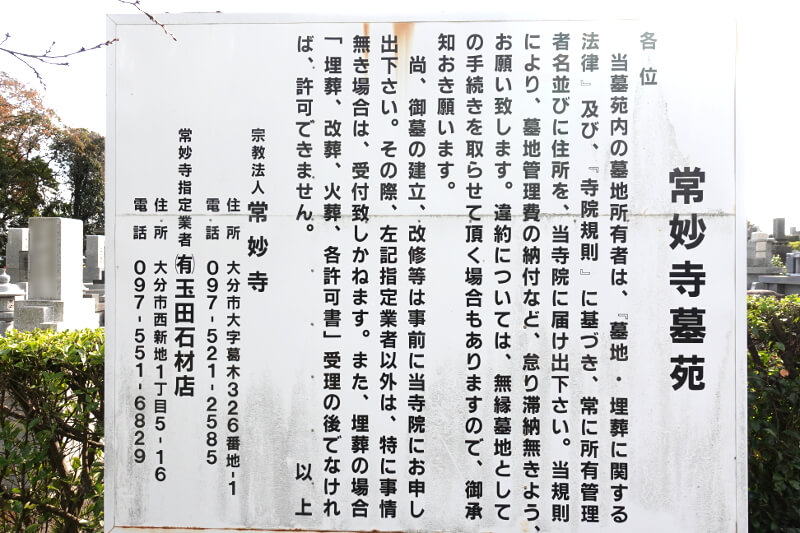 常妙寺墓苑
各位
当墓苑内の墓地所有者は、『墓地・埋葬に関する
法律』及び、『寺院規則』に基づき、常に所有管理
者名並びに住所を、当寺院に届け出下さい。当規則
により、墓地管理費の納付など、怠り滞納無きよう、
お願い致します。違約については、無縁墓地として
の手続きを取らせて頂く場合もありますので、御承
知おき願います。
尚、御墓の建立、改修等は事前に当寺院にお申し
出下さい。その際、左記指定業者以外は、特に事情
無き場合は、受付致しかねます。また、埋葬の場合
「埋葬、改葬、火葬、各許可書」受理の後でなけれ
ば、許可できません。
以上
宗教法人 常妙寺
住所 大分市大字葛木326番地-1
電話 097-521-2585
常妙寺指定業者 ㈲玉田石材店
住所 大分市西新地1丁目5-16
電話 097-551-6829